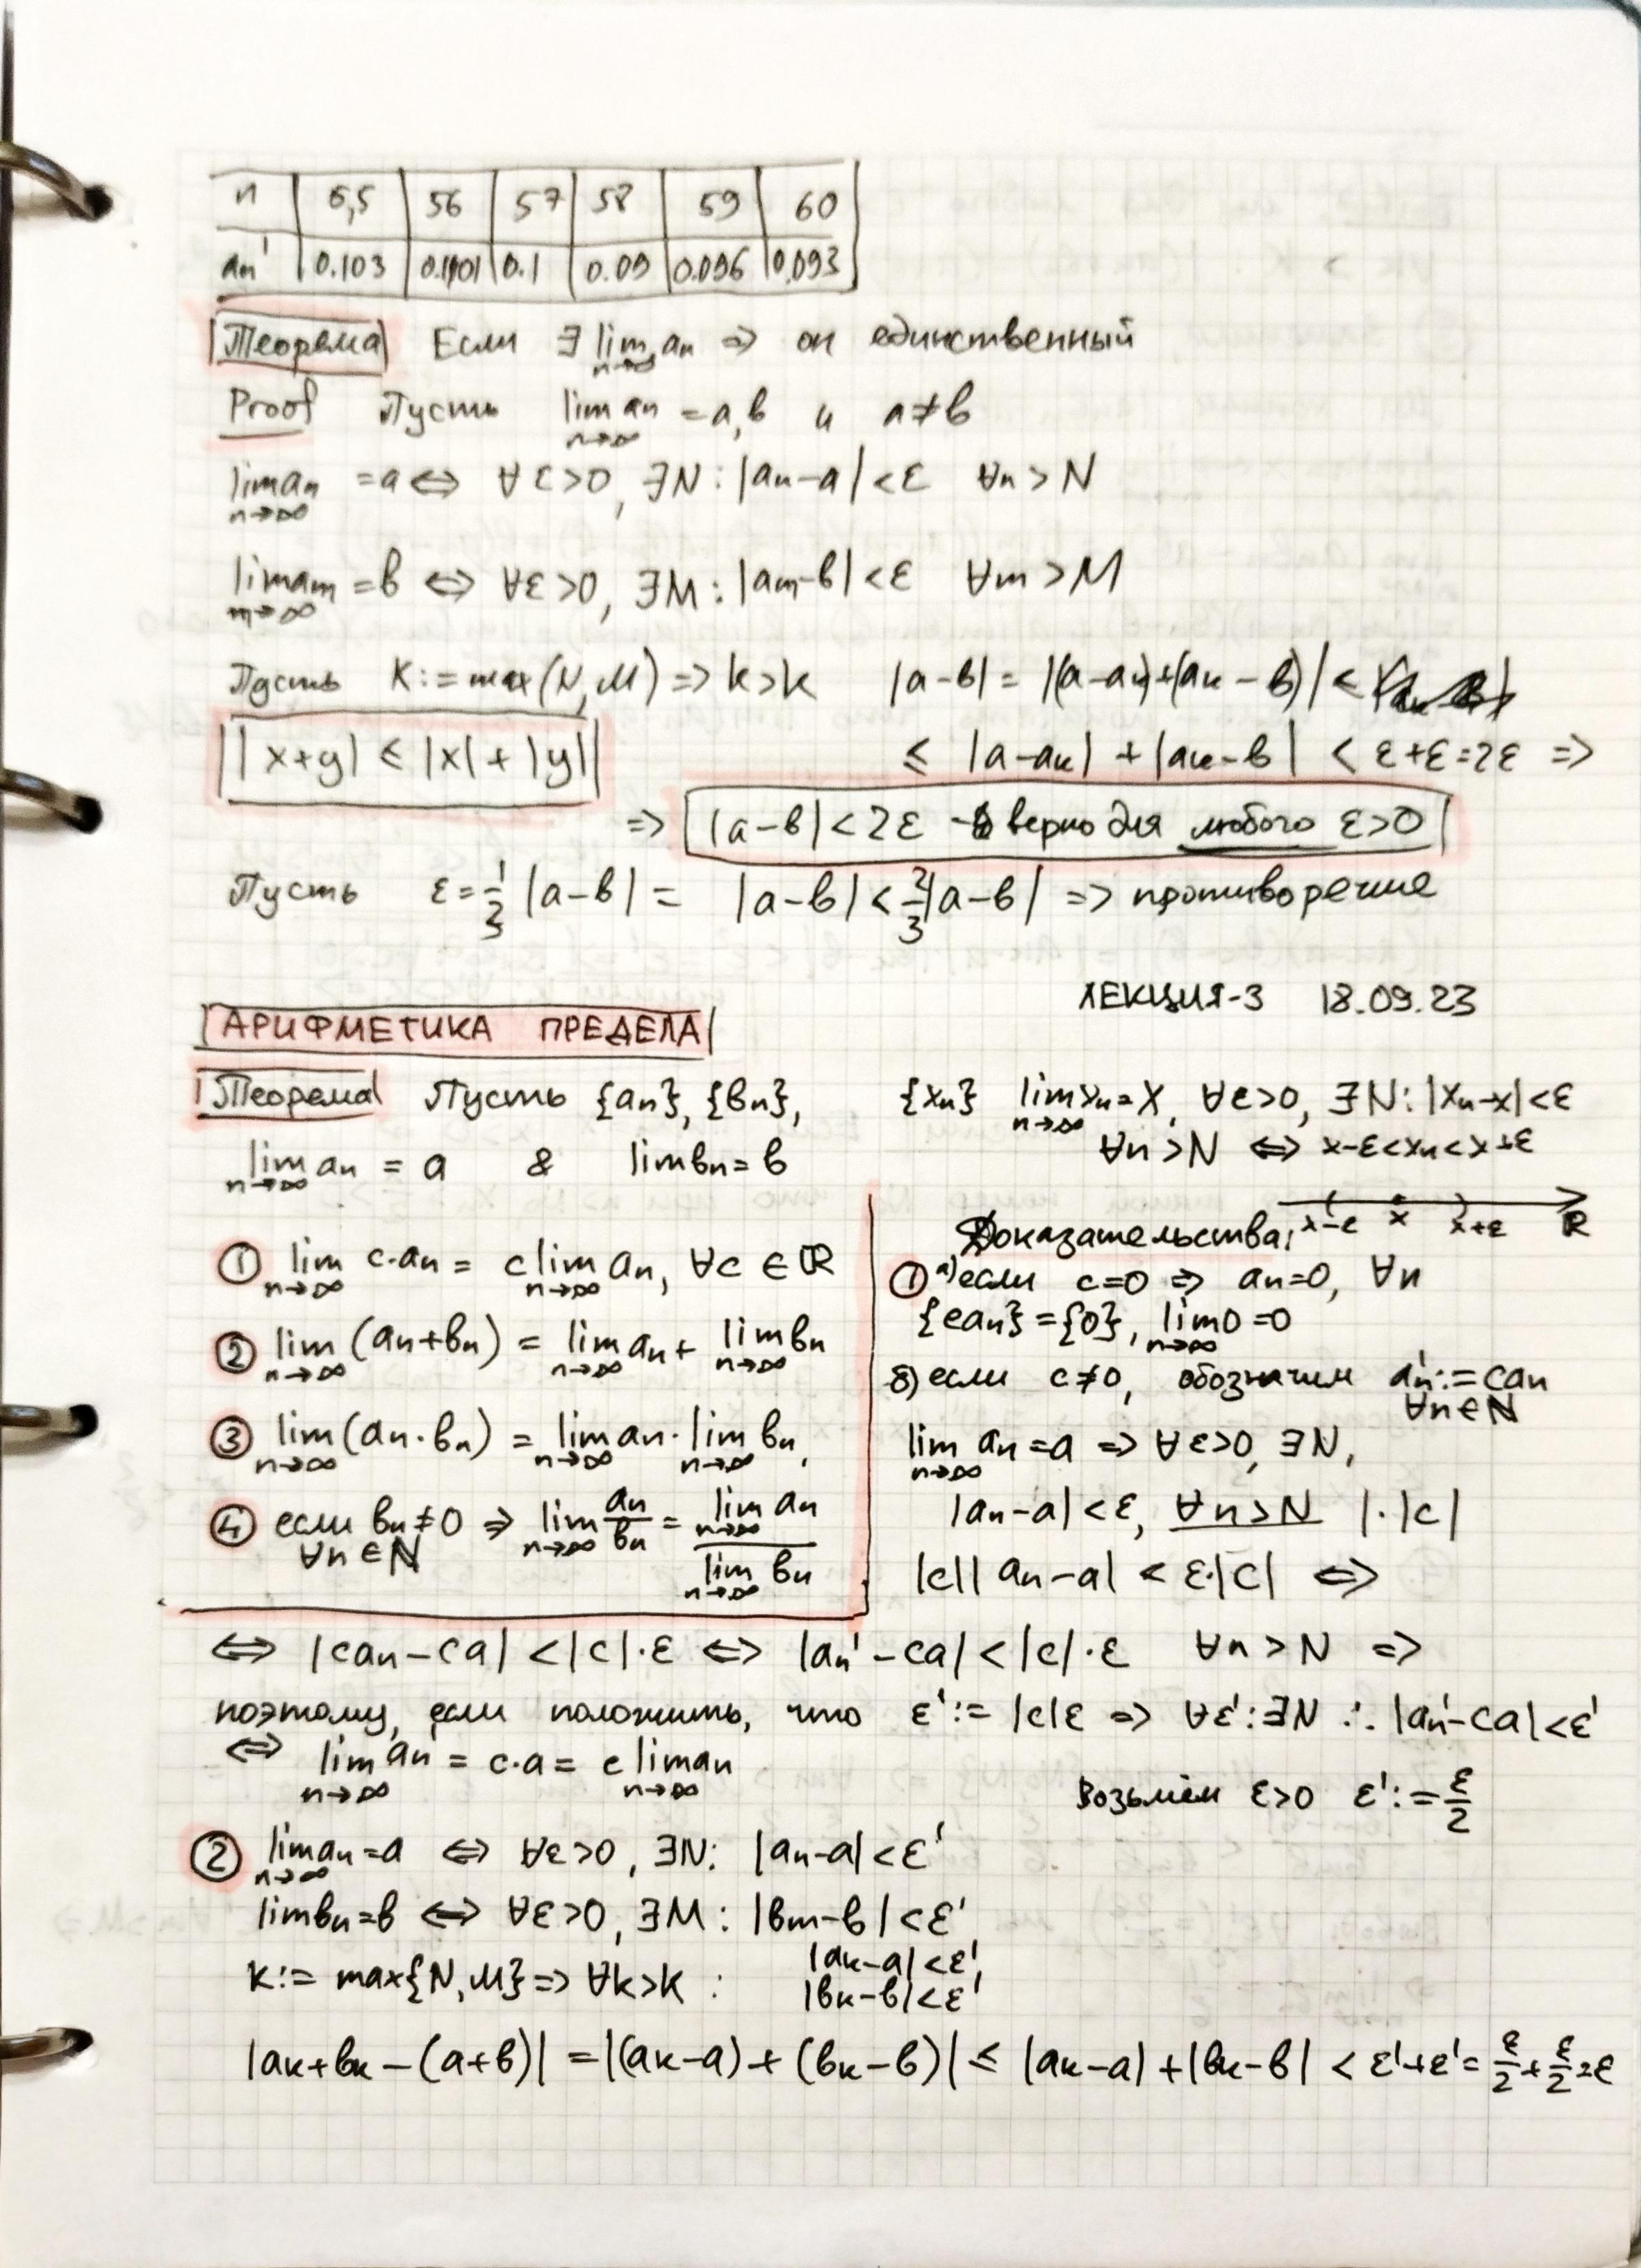 n | 5,5 | 56 | 57 | 58 | 59 | 60
an' | 0.103 | 0.1101 | 0.1 | 0.09 | 0.096 | 0.093
Теорема Если ∃ lim an => он единственный
n→∞
Proof Пусть lim an = a,b и a≠b
n→∞
lim an = a <=> ∀ε>0, ∃N: |an-a|<ε ∀n>N
n→∞
lim am = b <=> ∀ε>0, ∃M: |am-b|<ε ∀m>M
m→∞
Пусть K:=max(N,M) => k>k |a-b| = |(a-ak)+(ak-b)| ≤
||x+y| ≤ |x|+|y|| ≤ |a-ak| + |ak-b| < ε+ε=2ε =>
=> |a-b|<2ε - верно для любого ε>0
Пусть ε=1/3 |a-b| = |a-b|<2/3|a-b| => противоречие
ЛЕКЦИЯ-3 18.09.23
АРИФМЕТИКА ПРЕДЕЛА
Теорема Пусть {an}, {bn},
lim an = a & lim bn = b
n→∞
{xn} lim xn = x, ∀ε>0, ∃N: |xn-x|<ε
n→∞
∀n>N <=> x-ε<xn<x+ε
x-ε x x+ε R
① lim c·an = c lim an, ∀c ∈ R
n→∞ n→∞
② lim (an+bn) = lim an + lim bn
n→∞ n→∞ n→∞
③ lim (an·bn) = lim an · lim bn,
n→∞ n→∞ n→∞
④ если bn≠0 => lim an/bn = lim an / lim bn
∀n∈N n→∞ n→∞ n→∞
Доказательства:
① а) если c=0 => an=0, ∀n
{can}={0}, lim 0 = 0
n→∞
б) если c≠0, обозначим an':=can
∀n∈N
lim an = a => ∀ε>0, ∃N,
n→∞
|an-a|<ε, ∀n>N |·|c|
|c||an-a| < ε·|c| <=>
<=> |can-ca|<|c|·ε <=> |an'-ca|<|c|·ε ∀n>N =>
поэтому, если положить, что ε':=|c|ε => ∀ε':∃N ∴ |an'-ca|<ε'
<=> lim an' = c·a = c lim an
n→∞ n→∞
Возьмём ε>0 ε':=ε/2
② lim an = a <=> ∀ε>0, ∃N: |an-a|<ε'
n→∞
lim bn = b <=> ∀ε>0, ∃M: |bm-b|<ε'
K:= max{N,M} => ∀k>k : |ak-a|<ε',
|bk-b|<ε'
|ak+bk-(a+b)| = |(ak-a)+(bk-b)| ≤ |ak-a|+|bk-b| < ε'+ε' = ε/2+ε/2=ε